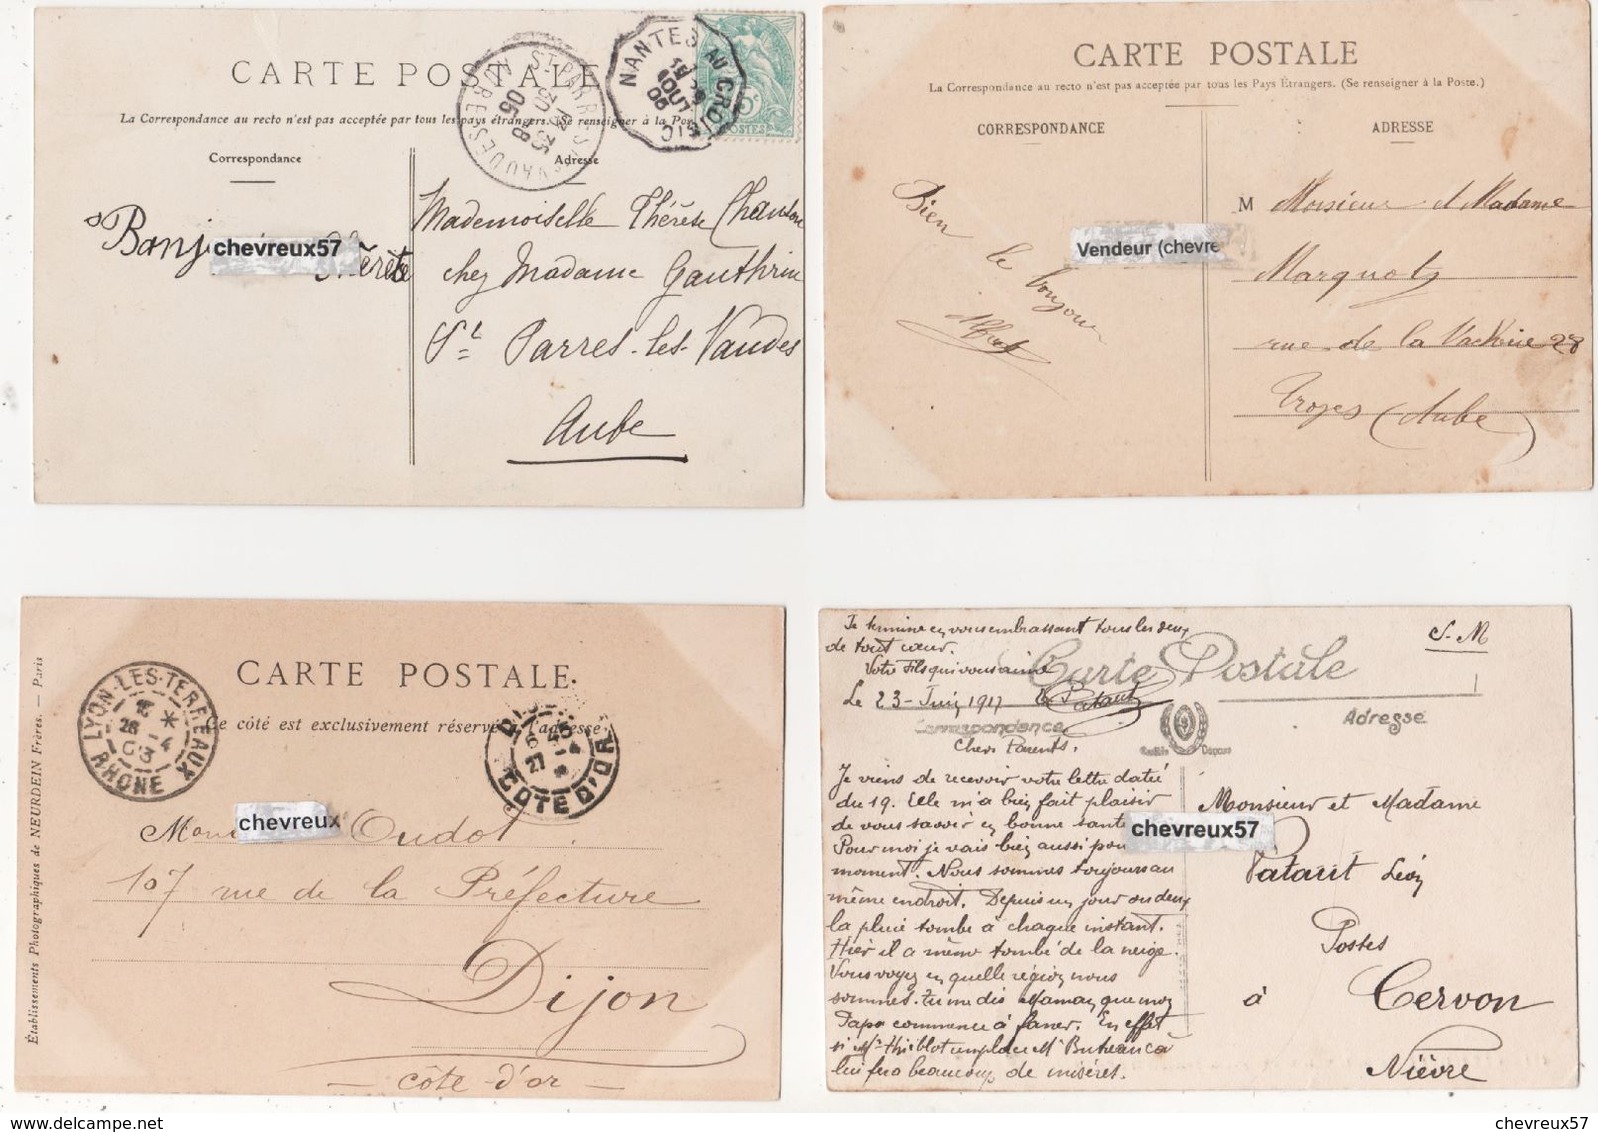 CARTE POSTALE
La Correspondance au recto n'est pas acceptée par tous les pays étrangers. (Se renseigner à la Poste
Correspondance
Adresse
NANTES AU CROISIC
AOUT
06
5c
POSTES
ST PARRES-LES-VAUDES
AUBE
Mademoiselle Thérèse
chez Madame Gauthrin
St Parres-les-Vaudes
Aube
chevreux57
CARTE POSTALE
La Correspondance au recto n'est pas acceptée par tous les Pays Étrangers. (Se renseigner à la Poste.)
CORRESPONDANCE
ADRESSE
Bien le bonjour
Albert
Vendeur (chevre
M Monsieur et Madame
Marquot
rue de la Vacherie 28
Troyes (Aube)
CARTE POSTALE
Ce côté est exclusivement réservé l'adresse
LYON-LES-TERREAUX
RHONE
COTE D'OR
Établissements Photographiques de NEURDEIN Frères. — Paris
chevreux
Oudot
107 rue de la Préfecture
Dijon
— côte-d'or —
Je termine en vous embrassant tous les deux
de tout cœur.
Votre Fils qui vous aime
Le 23 Juin 1917
S. M
Carte Postale
Correspondance
Adresse
Chers Parents,
Je viens de recevoir votre lettre daté
du 19. Elle m'a bien fait plaisir
de vous savoir en bonne santé
Pour moi je vais bien aussi pour
moment. Nous sommes toujours au
même endroit. Depuis un jour ou deux
la pluie tombe à chaque instant.
Hier il a même tombé de la neige.
Vous voyez en quelle région nous
sommes. Tu me dis Maman que mon
Papa commence à faner. En effet
si Mr Thieblot remplace Mr
lui fera beaucoup de misères.
chevreux57
Monsieur et Madame
Patarit Léon
Postes
à Cervon
Nièvre
chevreux57